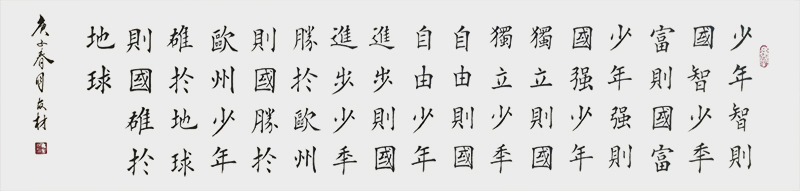 少年智則
國智少年
富則國富
少年强則
國强少年
獨立則國
獨立少年
自由則國
自由少年
進步則國
進步少年
勝於歐州
則國勝於
歐州少年
雄於地球
則國雄於
地球
庚子春月友材